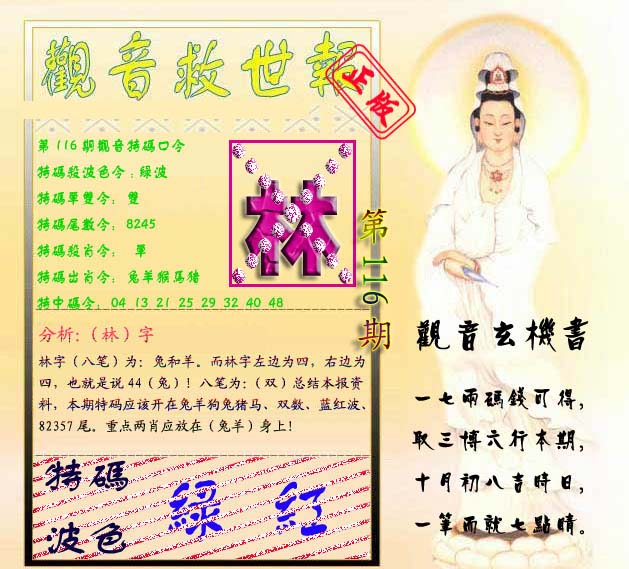 觀音救世報
正版
第116期觀音特碼口令
特碼殺波色令:綠波
特碼單雙令: 雙
特碼尾數令: 8245
特碼殺肖令: 單
特碼出肖令: 兔羊猴馬猪
特中碼令: 04 13 21 25 29 32 40 48
林
第116期
分析:(林)字
林字(八笔)为:兔和羊。而林字左边为四,右边为
四,也就是说44(兔)!八笔为:(双)总结本报资
料,本期特码应该开在兔羊狗兔猪马、双数、蓝红波、
82357尾。重点两肖应放在(兔羊)身上!
特碼
波色
綠 紅
觀音玄機書
一七兩碼錢可得,
取三博六行本期,
十月初八吉時日,
一筆而就七點晴。